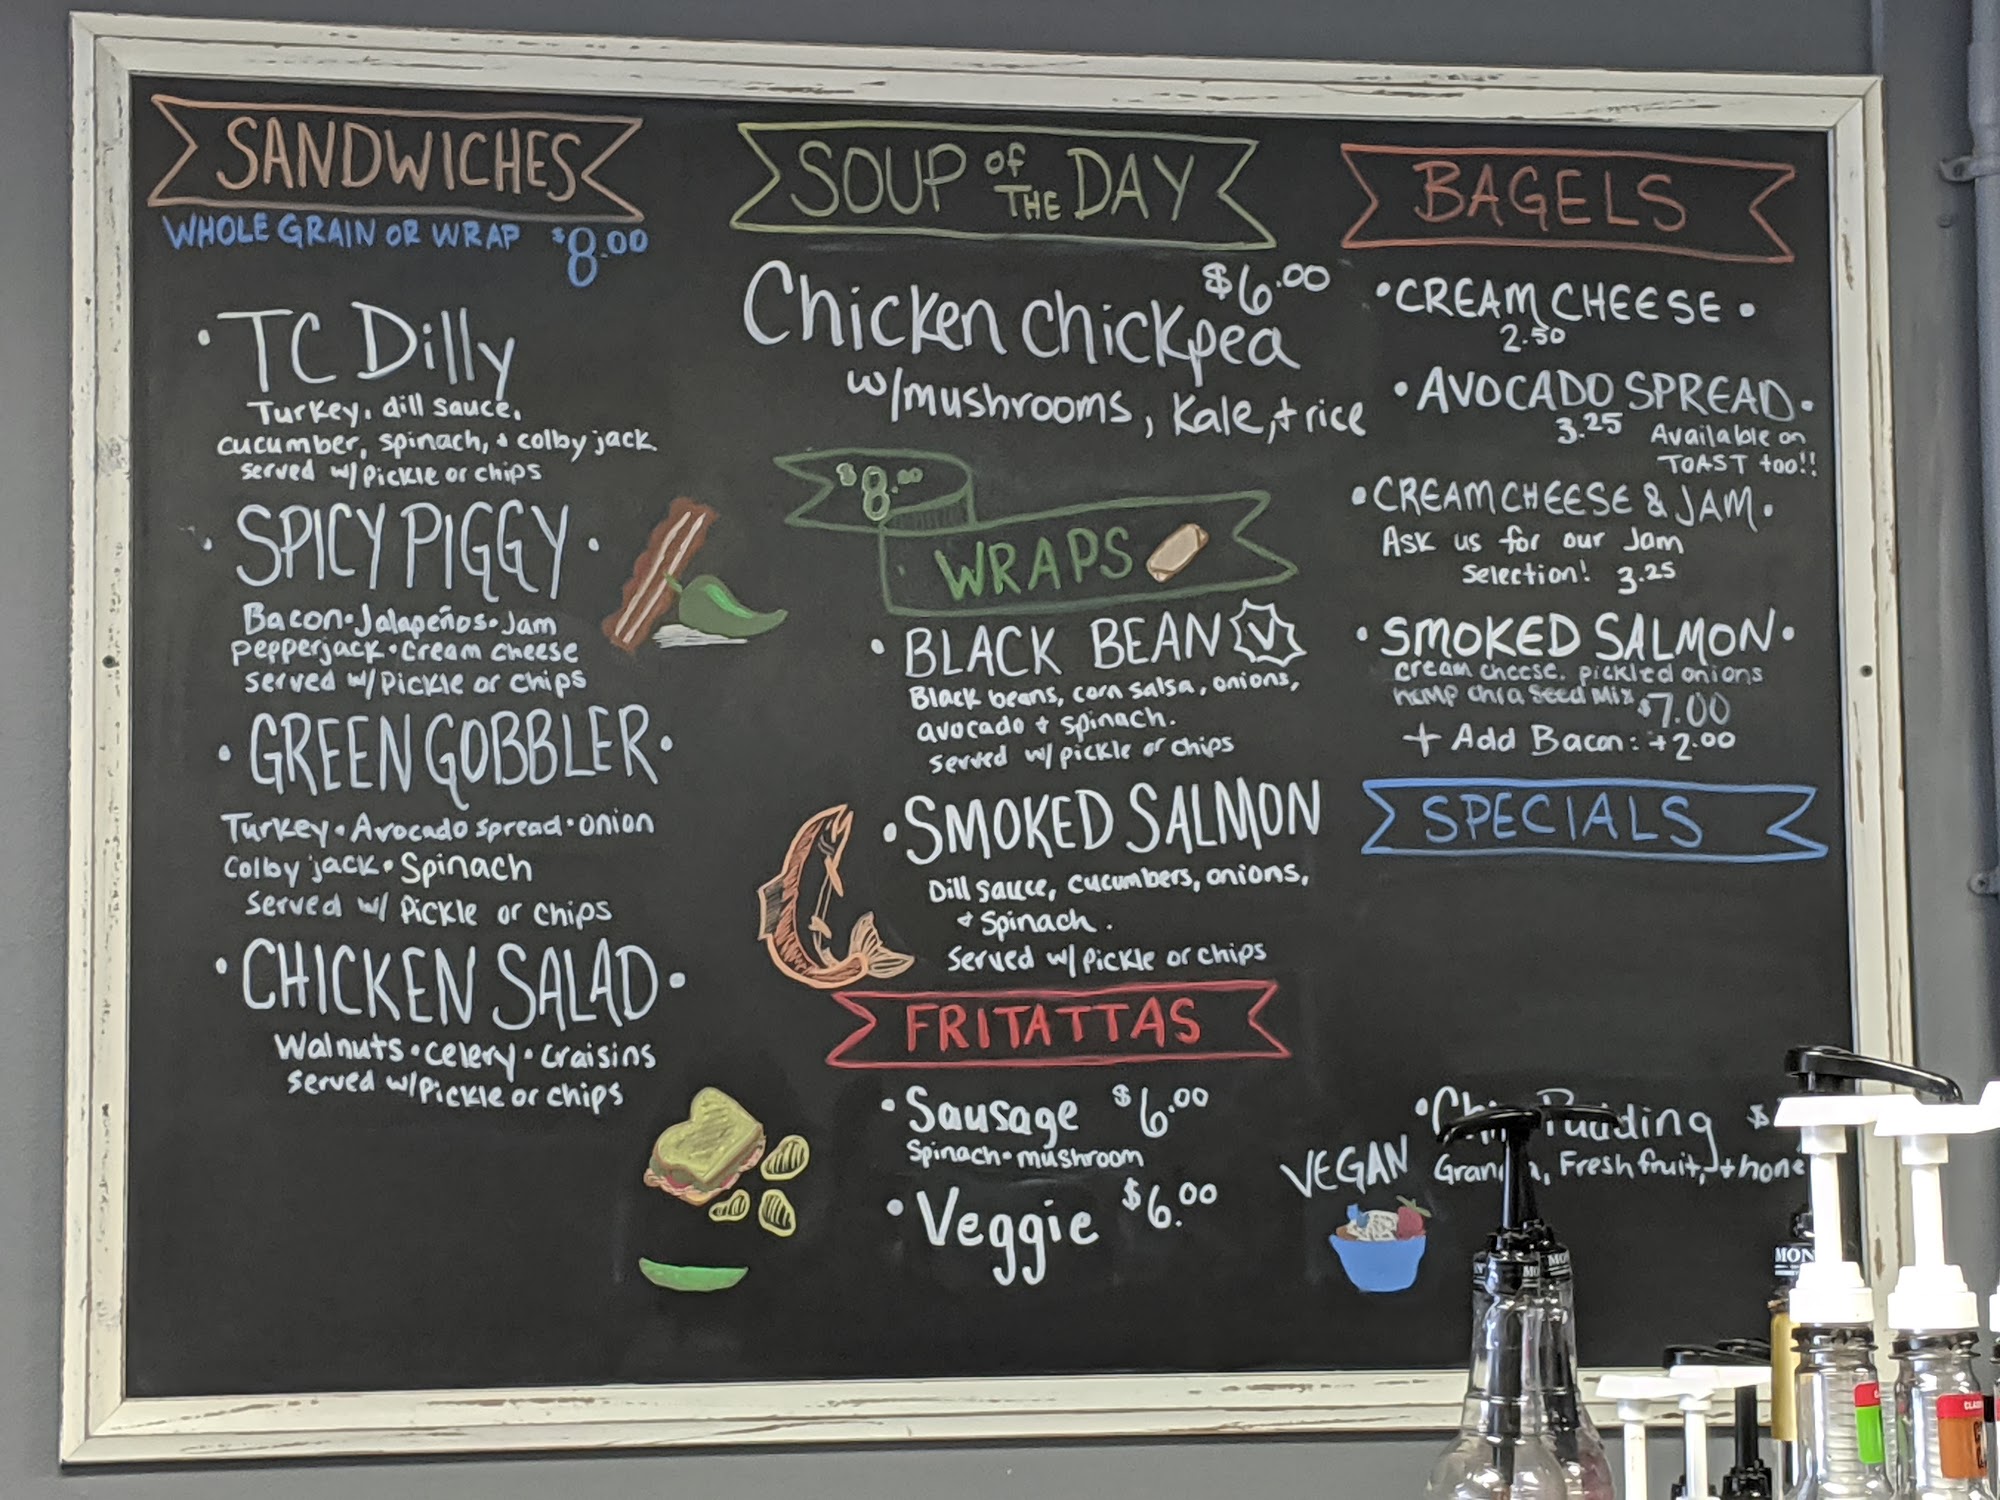 SANDWICHES
WHOLE GRAIN OR WRAP $8.00
• TC Dilly
Turkey, dill sauce,
cucumber, spinach, + colby jack
served w/ pickle or chips
• SPICY PIGGY •
Bacon • Jalapeños • Jam
pepperjack • cream cheese
served w/ pickle or chips
• GREEN GOBBLER •
Turkey • Avocado spread • onion
Colby jack • Spinach
Served w/ pickle or chips
• CHICKEN SALAD •
Walnuts • celery • craisins
served w/ pickle or chips
SOUP of THE DAY
$6.00
Chicken chickpea
w/ mushrooms, kale, + rice
$8.00
WRAPS
• BLACK BEAN V
Black beans, corn salsa, onions,
avocado + spinach.
served w/ pickle or chips
• SMOKED SALMON
Dill sauce, cucumbers, onions,
+ Spinach.
Served w/ pickle or chips
FRITATTAS
• Sausage $6.00
Spinach • mushroom
• Veggie $6.00
BAGELS
• CREAM CHEESE •
2.50
• AVOCADO SPREAD •
3.25 Available on
TOAST too!!
• CREAM CHEESE & JAM •
Ask us for our Jam
Selection! 3.25
• SMOKED SALMON •
cream cheese, pickled onions
hemp chia seed mix $7.00
+ Add Bacon: +2.00
SPECIALS
• Pudding $
VEGAN
Fresh fruit, +